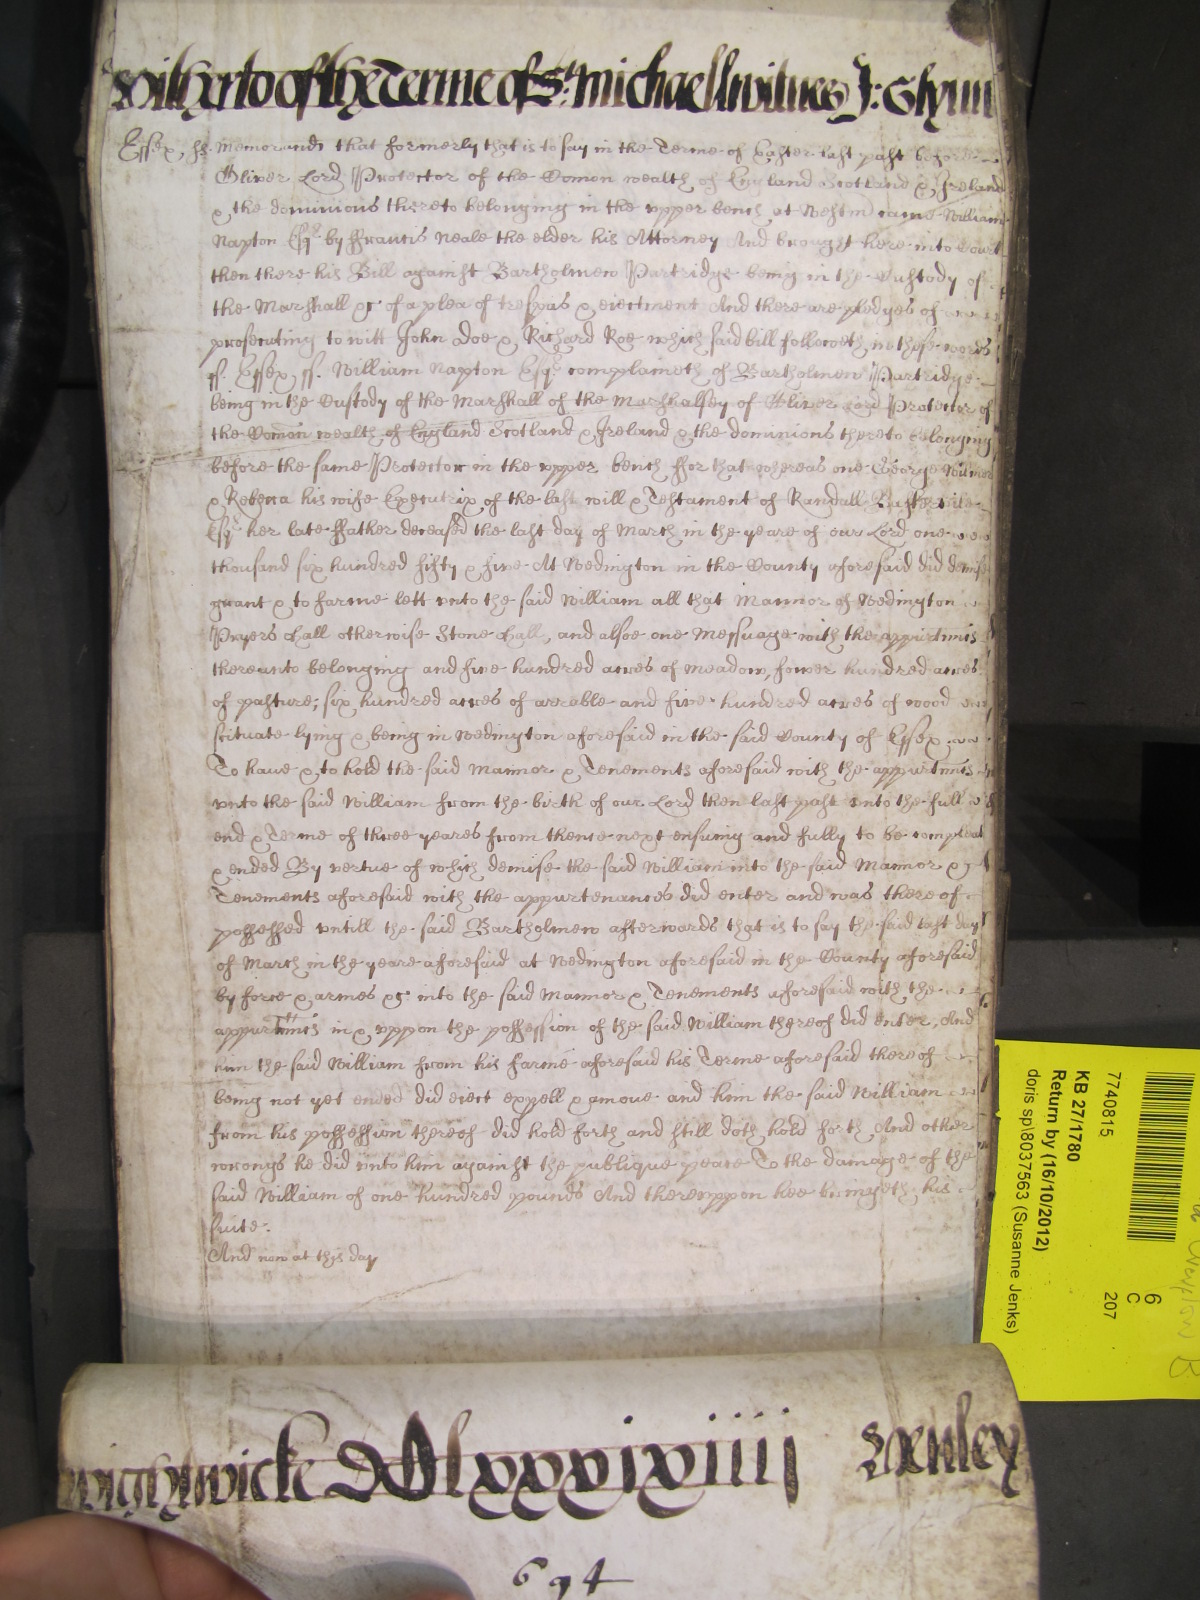 Witherto of the Terme of St. Michaell witnes J: Glynn
Essex, ss. Memorand that formerly that is to say in the Terme of Easter last past before
Oliver Lord Protector of the Comon wealth of England Scotland & Ireland
& the dominions thereto belonging in the upper bench at Westm came William
Napton Esqr. by ffrancis Neale the elder his Attorney And brought here into Court
then there his Bill against Bartholmew Partridge being in the Custody of
the Marshall &c of a plea of trespas & eiectment And there are pledges of
prosecuting to witt John Doe & Richard Roe which said bill followeth in these words
ss. Essex, ss. William Napton Esqr. complaineth of Bartholmew Partridge
being in the Custody of the Marshall of the Marshalsey of Oliver Lord Protector of
the Comon wealth of England Scotland & Ireland & the dominions thereto belonging
before the same Protector in the upper bench ffor that whereas one George
& Rebecca his wife Executrix of the last will & Testament of Randall
Esqr. her late ffather deceased the last day of March in the yeare of our Lord one
thousand six hundred fifty & five At Wedington in the County aforesaid did demise
graunt & to farme lett unto the said William all that Mannor of Wedington
Pryers hall otherwise Stone hall, and alsoe one Messuage with the appurtnnts
thereunto belonging and five hundred acres of meadow, fower hundred acres
of pasture; six hundred acres of arrable and five hundred acres of wood
scituate lying & being in Wedington aforesaid in the said County of Essex
To have & to hold the said Mannor & Tenements aforesaid with the appurtnnts
unto the said William from the birth of our Lord then last past unto the full
end & Terme of three yeares from thence next ensuing and fully to be compleat
& ended By vertue of which demise the said William into the said Mannor &
Tenements aforesaid with the appurtenances did enter and was there of
possessed untill the said Bartholmew afterwards that is to say the said last day
of March in the yeare aforesaid at Wedington aforesaid in the County aforesaid
by force & armes &c into the said Mannor & Tenements aforesaid with the
appurtnnts in & uppon the possession of the said William thereof did enter, And
him the said William from his farme aforesaid his Terme aforesaid thereof
being not yet ended did eiect expell & amove and him the said William
from his possession thereof did hold forth and still doth hold forth And other
wrongs he did unto him against the publique peace To the damage of the
said William of one hundred pounds And thereuppon hee bringeth his
suite.
And now at this day
wightwicke Henley
694
7740815
KB 27/1780
Return by (16/10/2012)
doris sp\8037563 (Susanne Jenks)
6
C
207